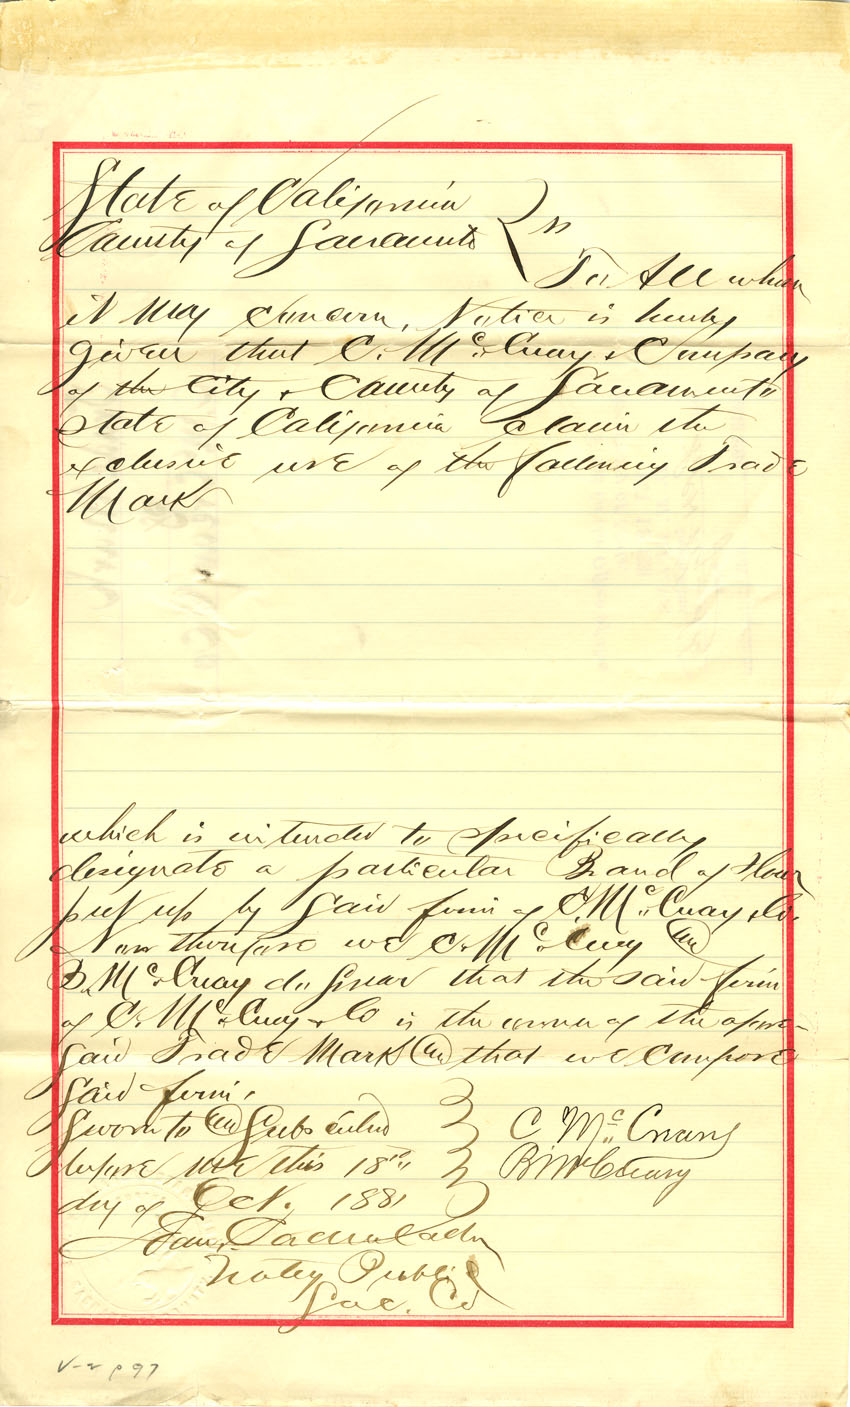 State of California
County of Sacramento } ss
To All whom
it May Concern, Notice is hereby
given that C. McCreary & Company
of the City & County of Sacramento
State of California claim the
exclusive use of the following Trade
Mark
which is intended to specifically
designate a particular Brand of Flour
put up by Said firm of C. McCreary & Co.
Now therefore we C. McCreary and
B. McCreary do Swear that the said firm
of C. McCreary & Co is the owner of the afore-
Said Trade Mark and that we compose
Said firm.
Sworn to and Subscribed
before me this 18th
day of Oct. 1881
C McCreary
B McCreary
Notary Public
Sac. Co
V-2 p 97